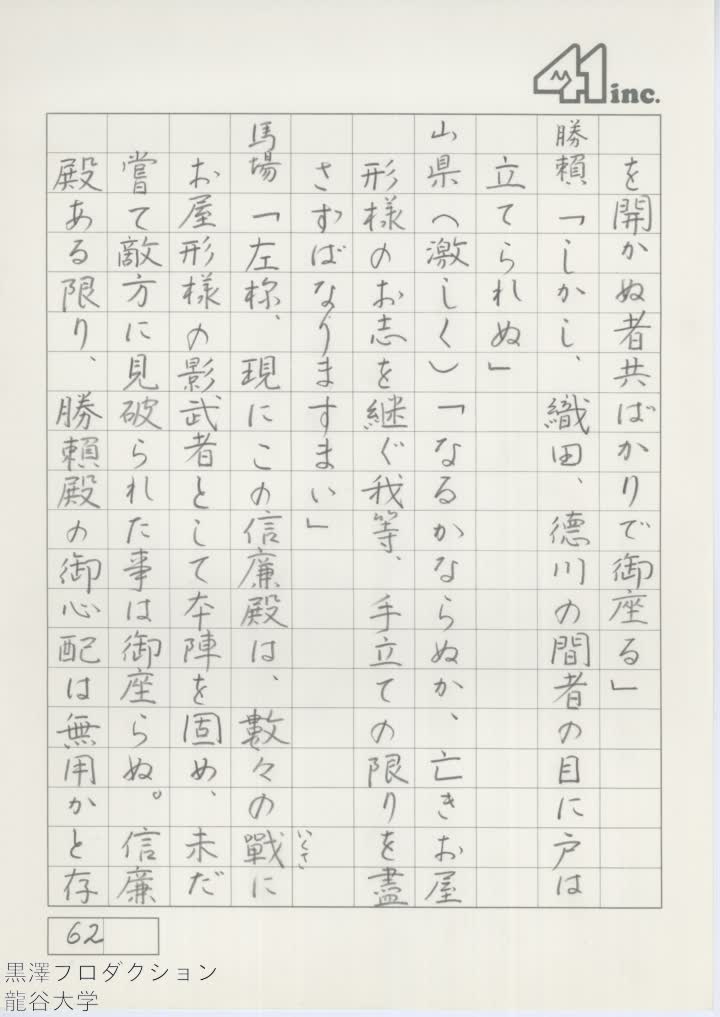 41 inc.
を開かぬ者共ばかりで御座る」
勝頼「しかし、織田、徳川の間者の目に戸は
立てられぬ」
山県(激しく)「なるかならぬか、亡きお屋
形様のお志を継ぐ我等、手立ての限りを盡
さずばなりますまい」
馬場「左様、現にこの信廉殿は、數々の戰に
いくさ
お屋形様の影武者として本陣を固め、未だ
嘗て敵方に見破られた事は御座らぬ。信廉
殿ある限り、勝頼殿の御心配は無用かと存
62
黒澤プロダクション
龍谷大学